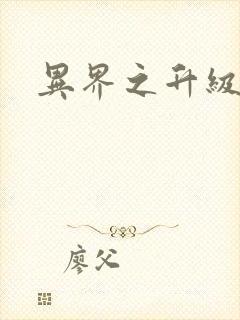 異界之升級
廖父